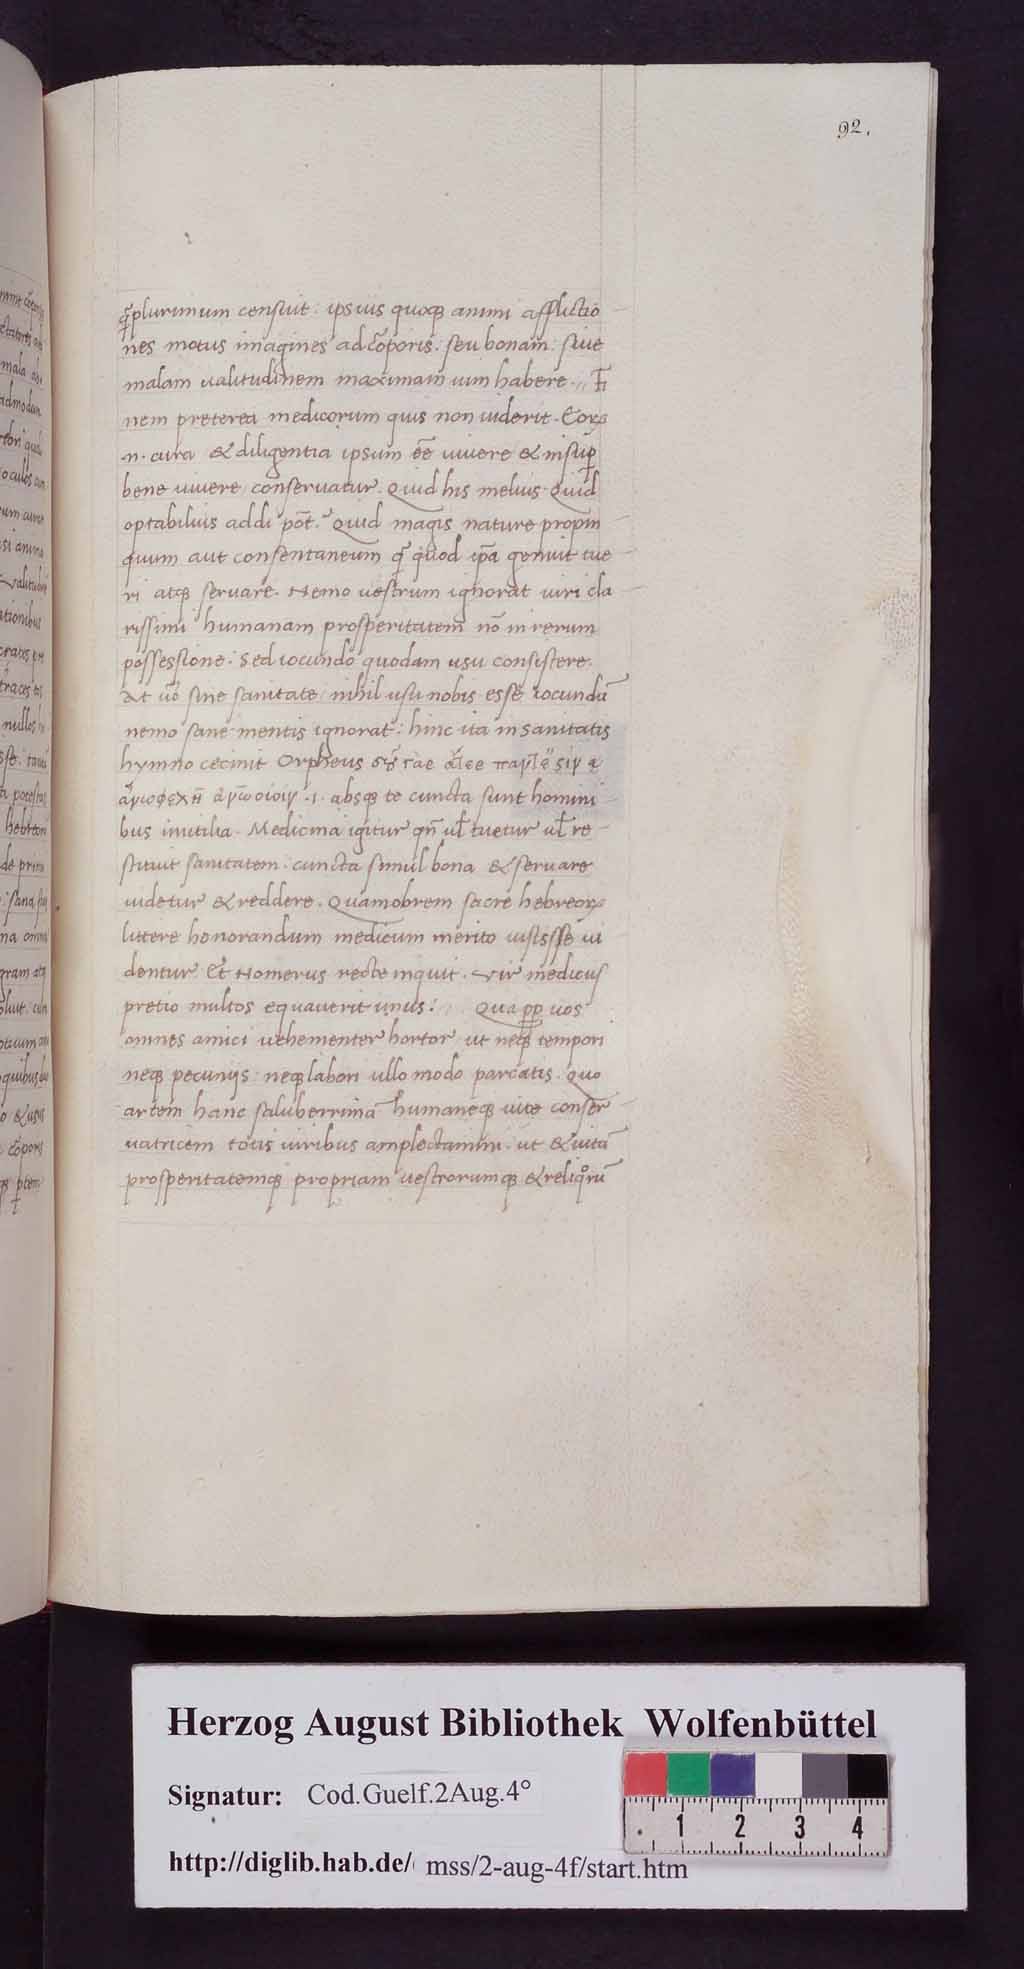 92.
q̄plurimum censuit: ipsius quoq animi afflictio
nes motus imagines ad cōporis: seu bonam: siue
malam ualitudinem maximam uim habere. Fi
nem preterea medicorum quis non uiderit. Corꝝ
n. cura & diligentia ipsum eē uiuere & insuꝑ
bene uiuere conseruatur. Quid his melius Quid
optabilius addi pōt. Quid magis nature propin
quum aut consentaneum q̄ quod ipa genuit tue
ri atq seruare. Nemo uestrum ignorat uiri cla
rissimi humanam prosperitatem nō in rerum
possessione. Sed iocundo quodam usu consistere.
At uō sine sanitate nihil usu nobis esse iocundū
nemo sane mentis ignorat: hinc ita in sanitatis
hymno cecinit Orpheus
.i. absq te cuncta sunt homini
bus inutilia. Medicina igitur qn̄ ul̄ tuetur ul̄ re
stituit sanitatem: cuncta simul bona & seruare
uidetur & reddere. Quamobrem sacre hebreoꝝ
littere honorandum medicum merito iussisse ui
dentur. Et Homerus recte inquit. Vir medicus
pretio multos equauerit unus: Quapp uos
omnes amici uehementer hortor ut neq tempori
neq pecunijs: neq labori ullo modo parcatis. Quo
artem hanc saluberrimā humaneq uite conser
uatricem totis uiribus amplectamini. ut & uitā
prosperitatemq propriam uestrorumq & reliqorū
Herzog August Bibliothek Wolfenbüttel
Signatur: Cod.Guelf.2Aug.4°
1 2 3 4
http://diglib.hab.de/ mss/2-aug-4f/start.htm